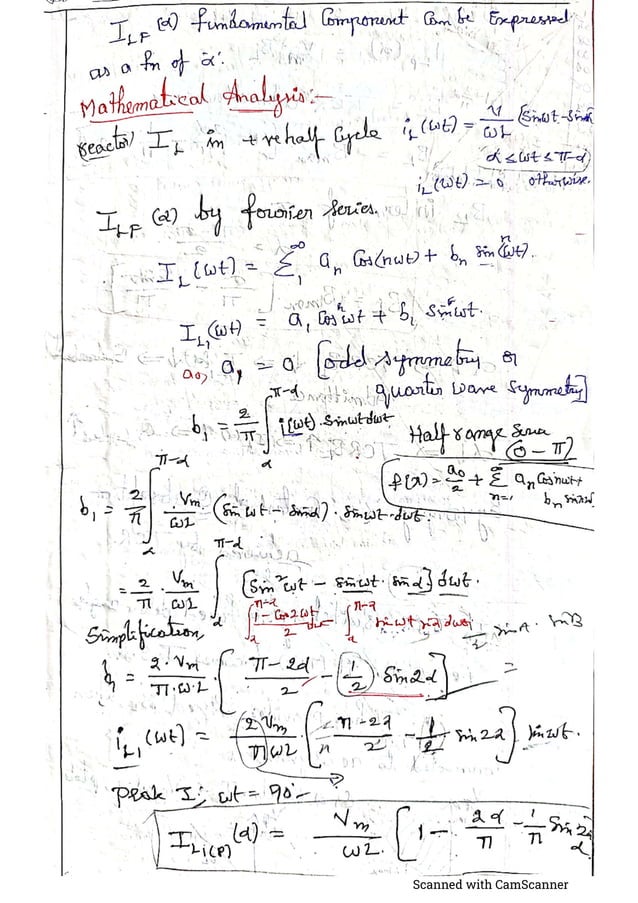 I_LF (α) fundamental Component Can be Expressed
as a fn of α.
Mathematical Analysis:-
reactor I_L in +ve half Cycle i_L(ωt) = V/ωL (sinωt - sinα
α ≤ ωt ≤ π-α)
i_L(ωt) = 0 otherwise.
I_LF (α) by fourier series.
I_L (ωt) = Σ_1^∞ a_n Cos(nωt) + b_n sin(nωt).
I_L1(ωt) = a_1 Cosωt + b_1 Sinωt.
a_0, a_1 = 0 [odd symmetry or
quarter wave symmetry]
b_1 = 2/π ∫_α^(π-α) i(ωt). Sinωt dωt
Half range Series
(0 - π)
f(x) = a_0/2 + Σ_(n=1)^∞ a_n Cosnωt +
b_n sin
b_1 = 2/π ∫_α^(π-α) Vm/ωL (Sinωt - Sinα). Sinωt.dωt.
= 2/π . Vm/ωL ∫_α^(π-α) [Sin²ωt - sinωt. sinα] dωt.
∫_α^(π-α) (1-Cos2ωt)/2 dωt - ∫_α^(π-α) sinωt sinα dωt
1/2 sinA. sinB
Simplification
b_1 = 2.Vm/π.ω.L . [(π-2α)/2 - (1/2) . Sin2α] =
i_L1 (ωt) = 2Vm/πωL [(π-2α)/2 - 1/2 sin2α] sinωt.
Peak I; ωt = 90-
I_L1(P) (α) = Vm/ωL [1 - 2α/π - 1/π Sin2α
Scanned with CamScanner